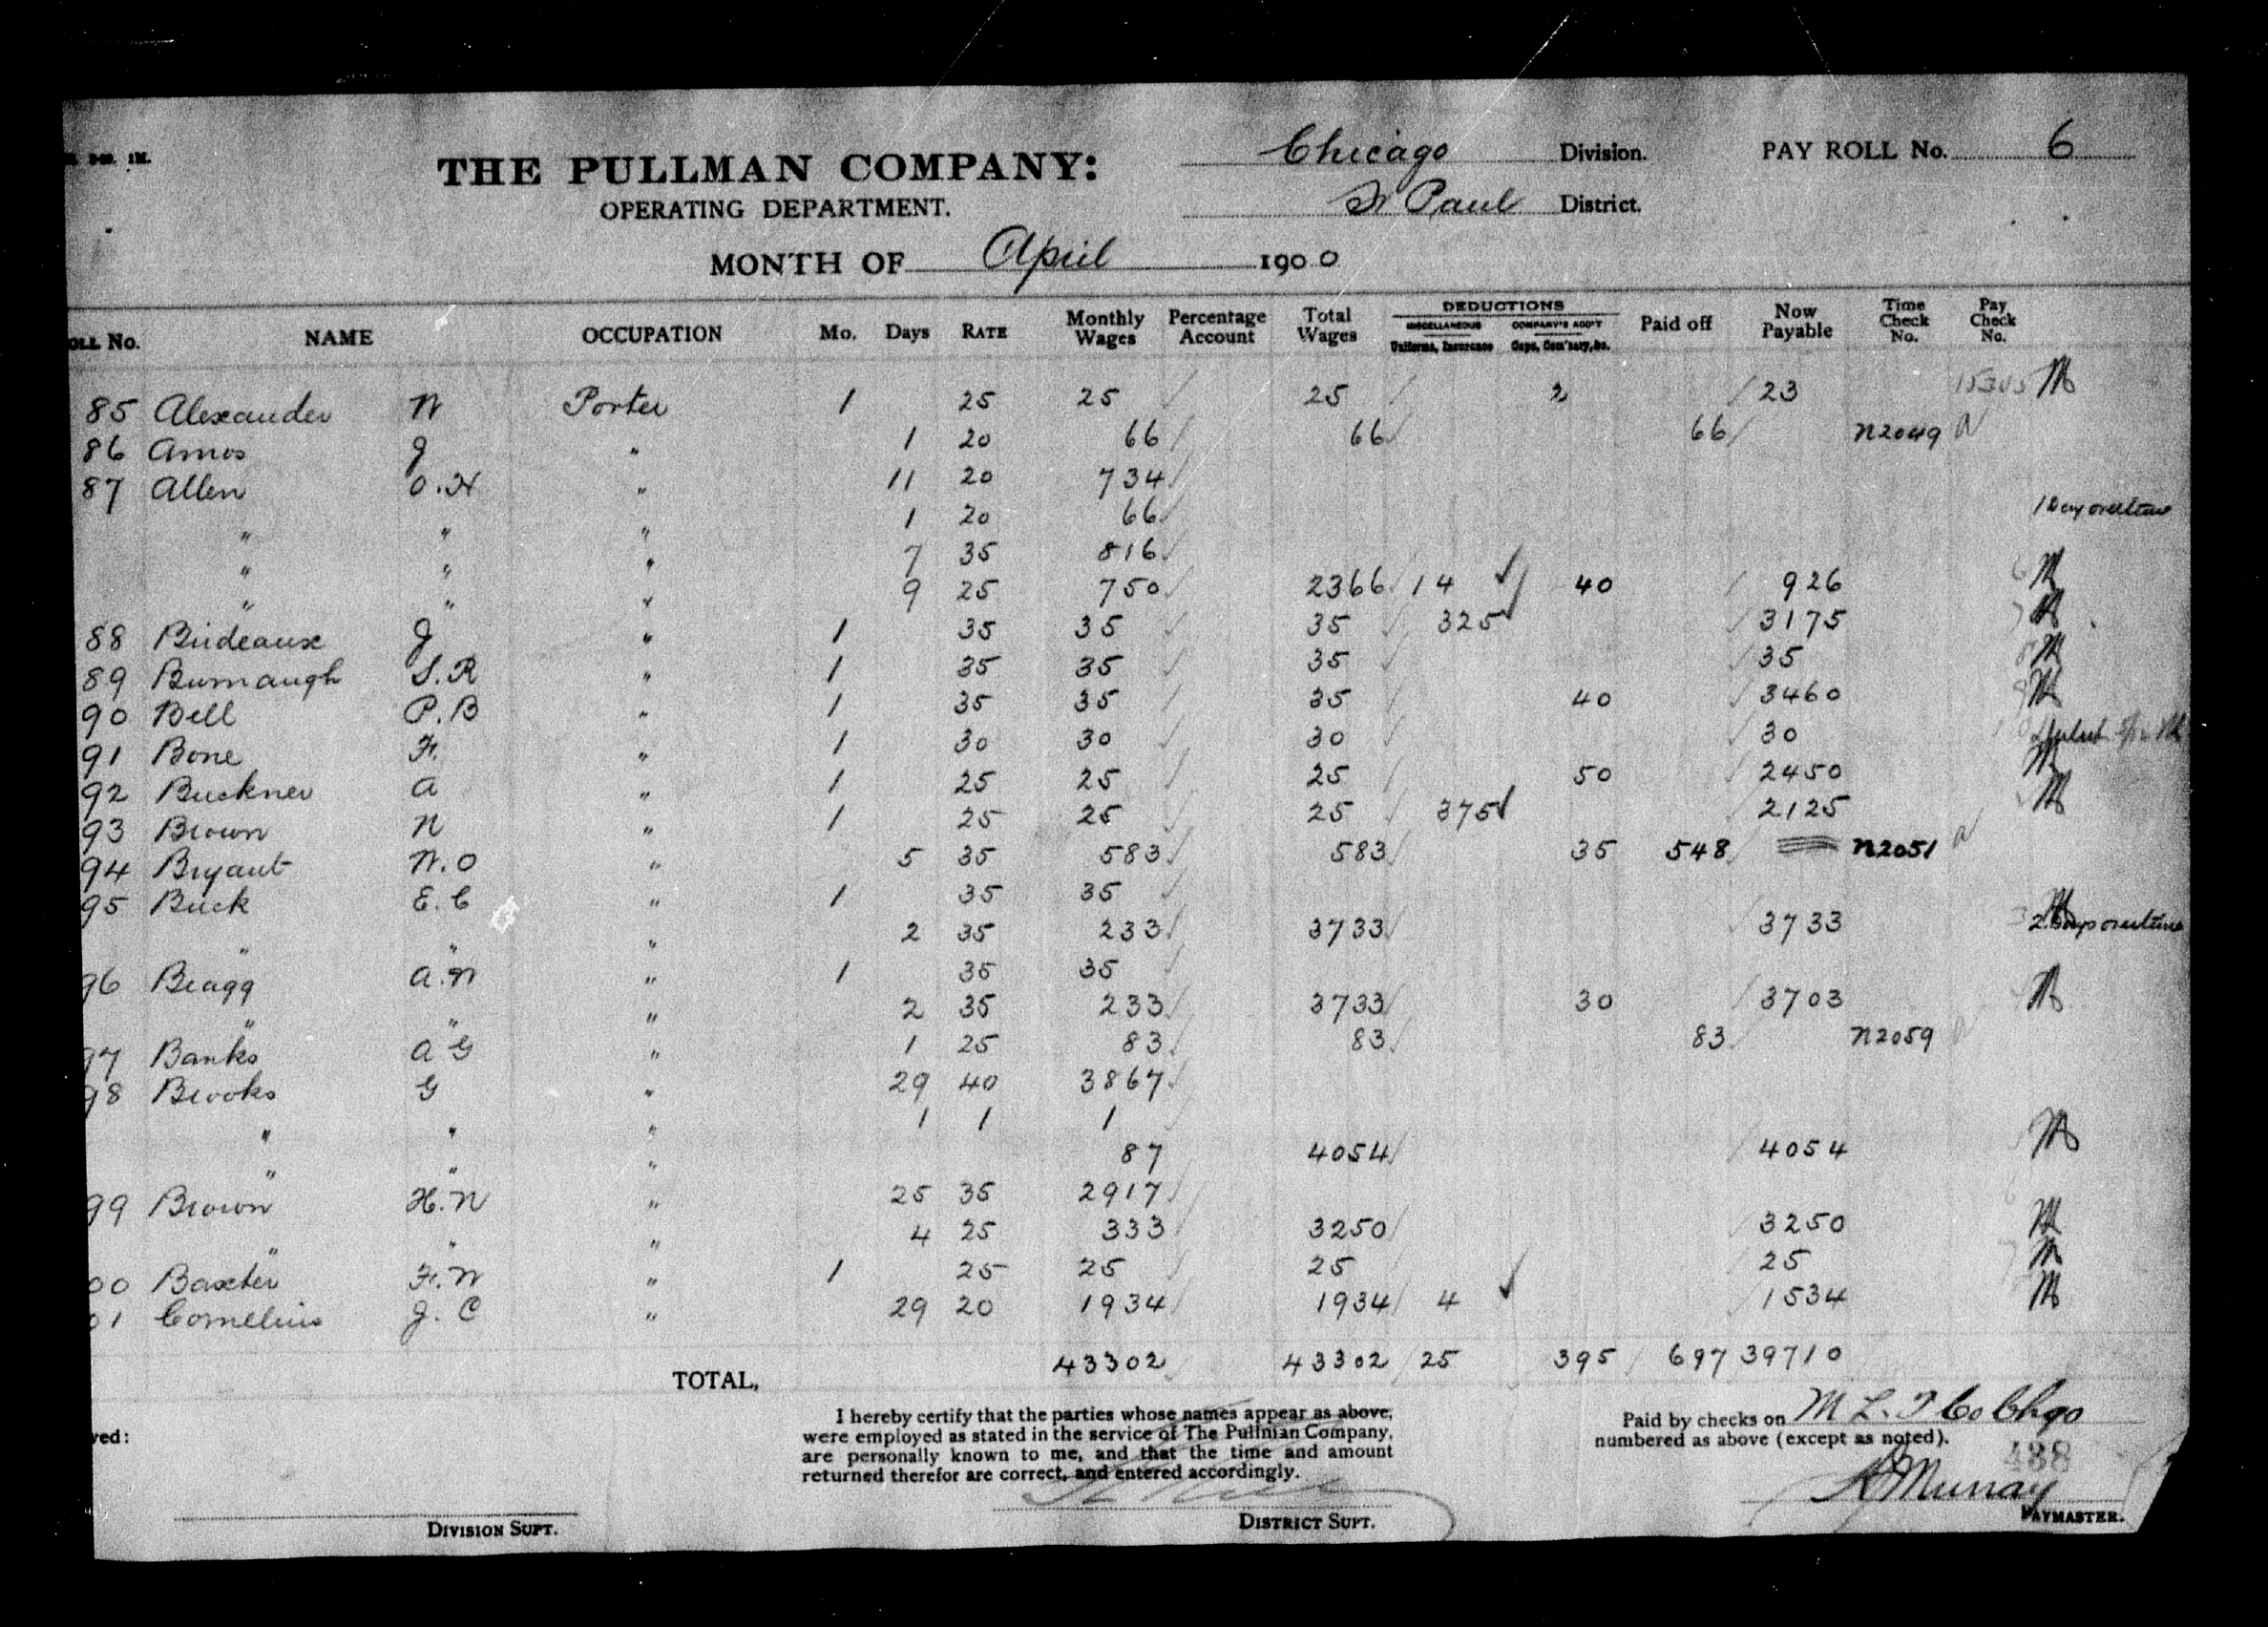 THE PULLMAN COMPANY:
OPERATING DEPARTMENT.
Chicago Division.
St Paul District.
PAY ROLL No. 6
MONTH OF April 1900
OLL No. NAME OCCUPATION Mo. Days RATE Monthly Wages Percentage Account Total Wages DEDUCTIONS MISCELLANEOUS Uniforms, Insurance COMPANY'S ACC'T Caps, Com'sary, &c. Paid off Now Payable Time Check No. Pay Check No.
85 Alexander W Porter 1 25 25 25 2 23 15305
86 Amos J " 1 20 66 66 66 N2049
87 Allen O.H " 11 20 734
" " " 1 20 66 1 Day overtime
" " " 7 35 816
" " " 9 25 750 2366 14 40 926
88 Birdeaux J " 1 35 35 35 325 3175
89 Burnaugh S.R " 1 35 35 35 35
90 Bell P.B " 1 35 35 35 40 3460
91 Bone F. " 1 30 30 30 30
92 Buckner A " 1 25 25 25 50 2450
93 Brown N " 1 25 25 25 375 2125
94 Bryant W.O " 5 35 583 583 35 548 N2051
95 Buck E.C " 1 35 35
" " " 2 35 233 3733 3733 2 Days overtime
96 Bragg A.W " 1 35 35
" " " 2 35 233 3733 30 3703
97 Banks A G " 1 25 83 83 83 N2059
98 Brooks G " 29 40 3867
" " " 1 1 1
" " " 87 4054 4054
99 Brown H.N " 25 35 2917
" " " 4 25 333 3250 3250
00 Baxter F.W " 1 25 25 25 25
01 Cornelius J.C " 29 20 1934 1934 4 1534
TOTAL, 43302 43302 25 395 697 39710
I hereby certify that the parties whose names appear as above,
were employed as stated in the service of The Pullman Company,
are personally known to me, and that the time and amount
returned therefor are correct, and entered accordingly.
Paid by checks on M L. T Co Chgo
numbered as above (except as noted).
488
Murray
ved:
DIVISION SUPT.
DISTRICT SUPT.
PAYMASTER.